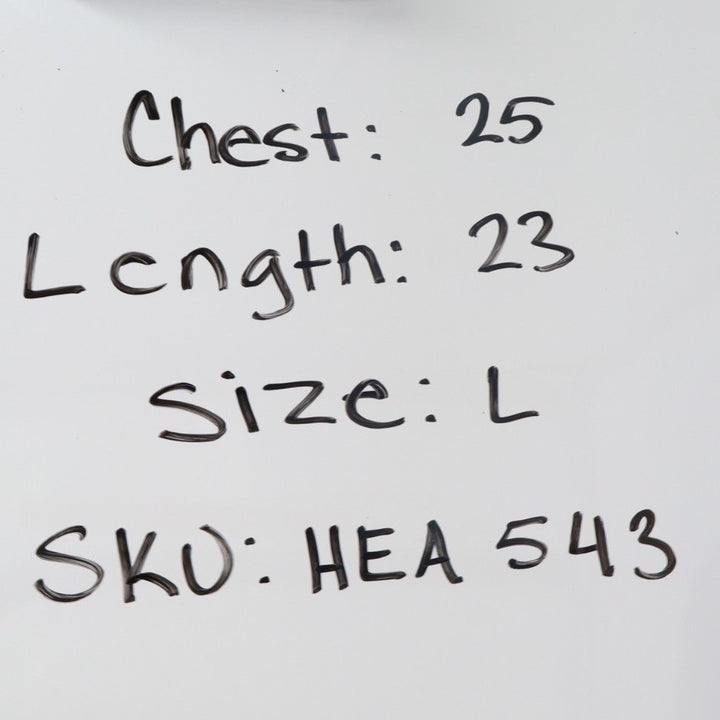 Chest: 25
Length: 23
Size: L
SKU: HEA 543